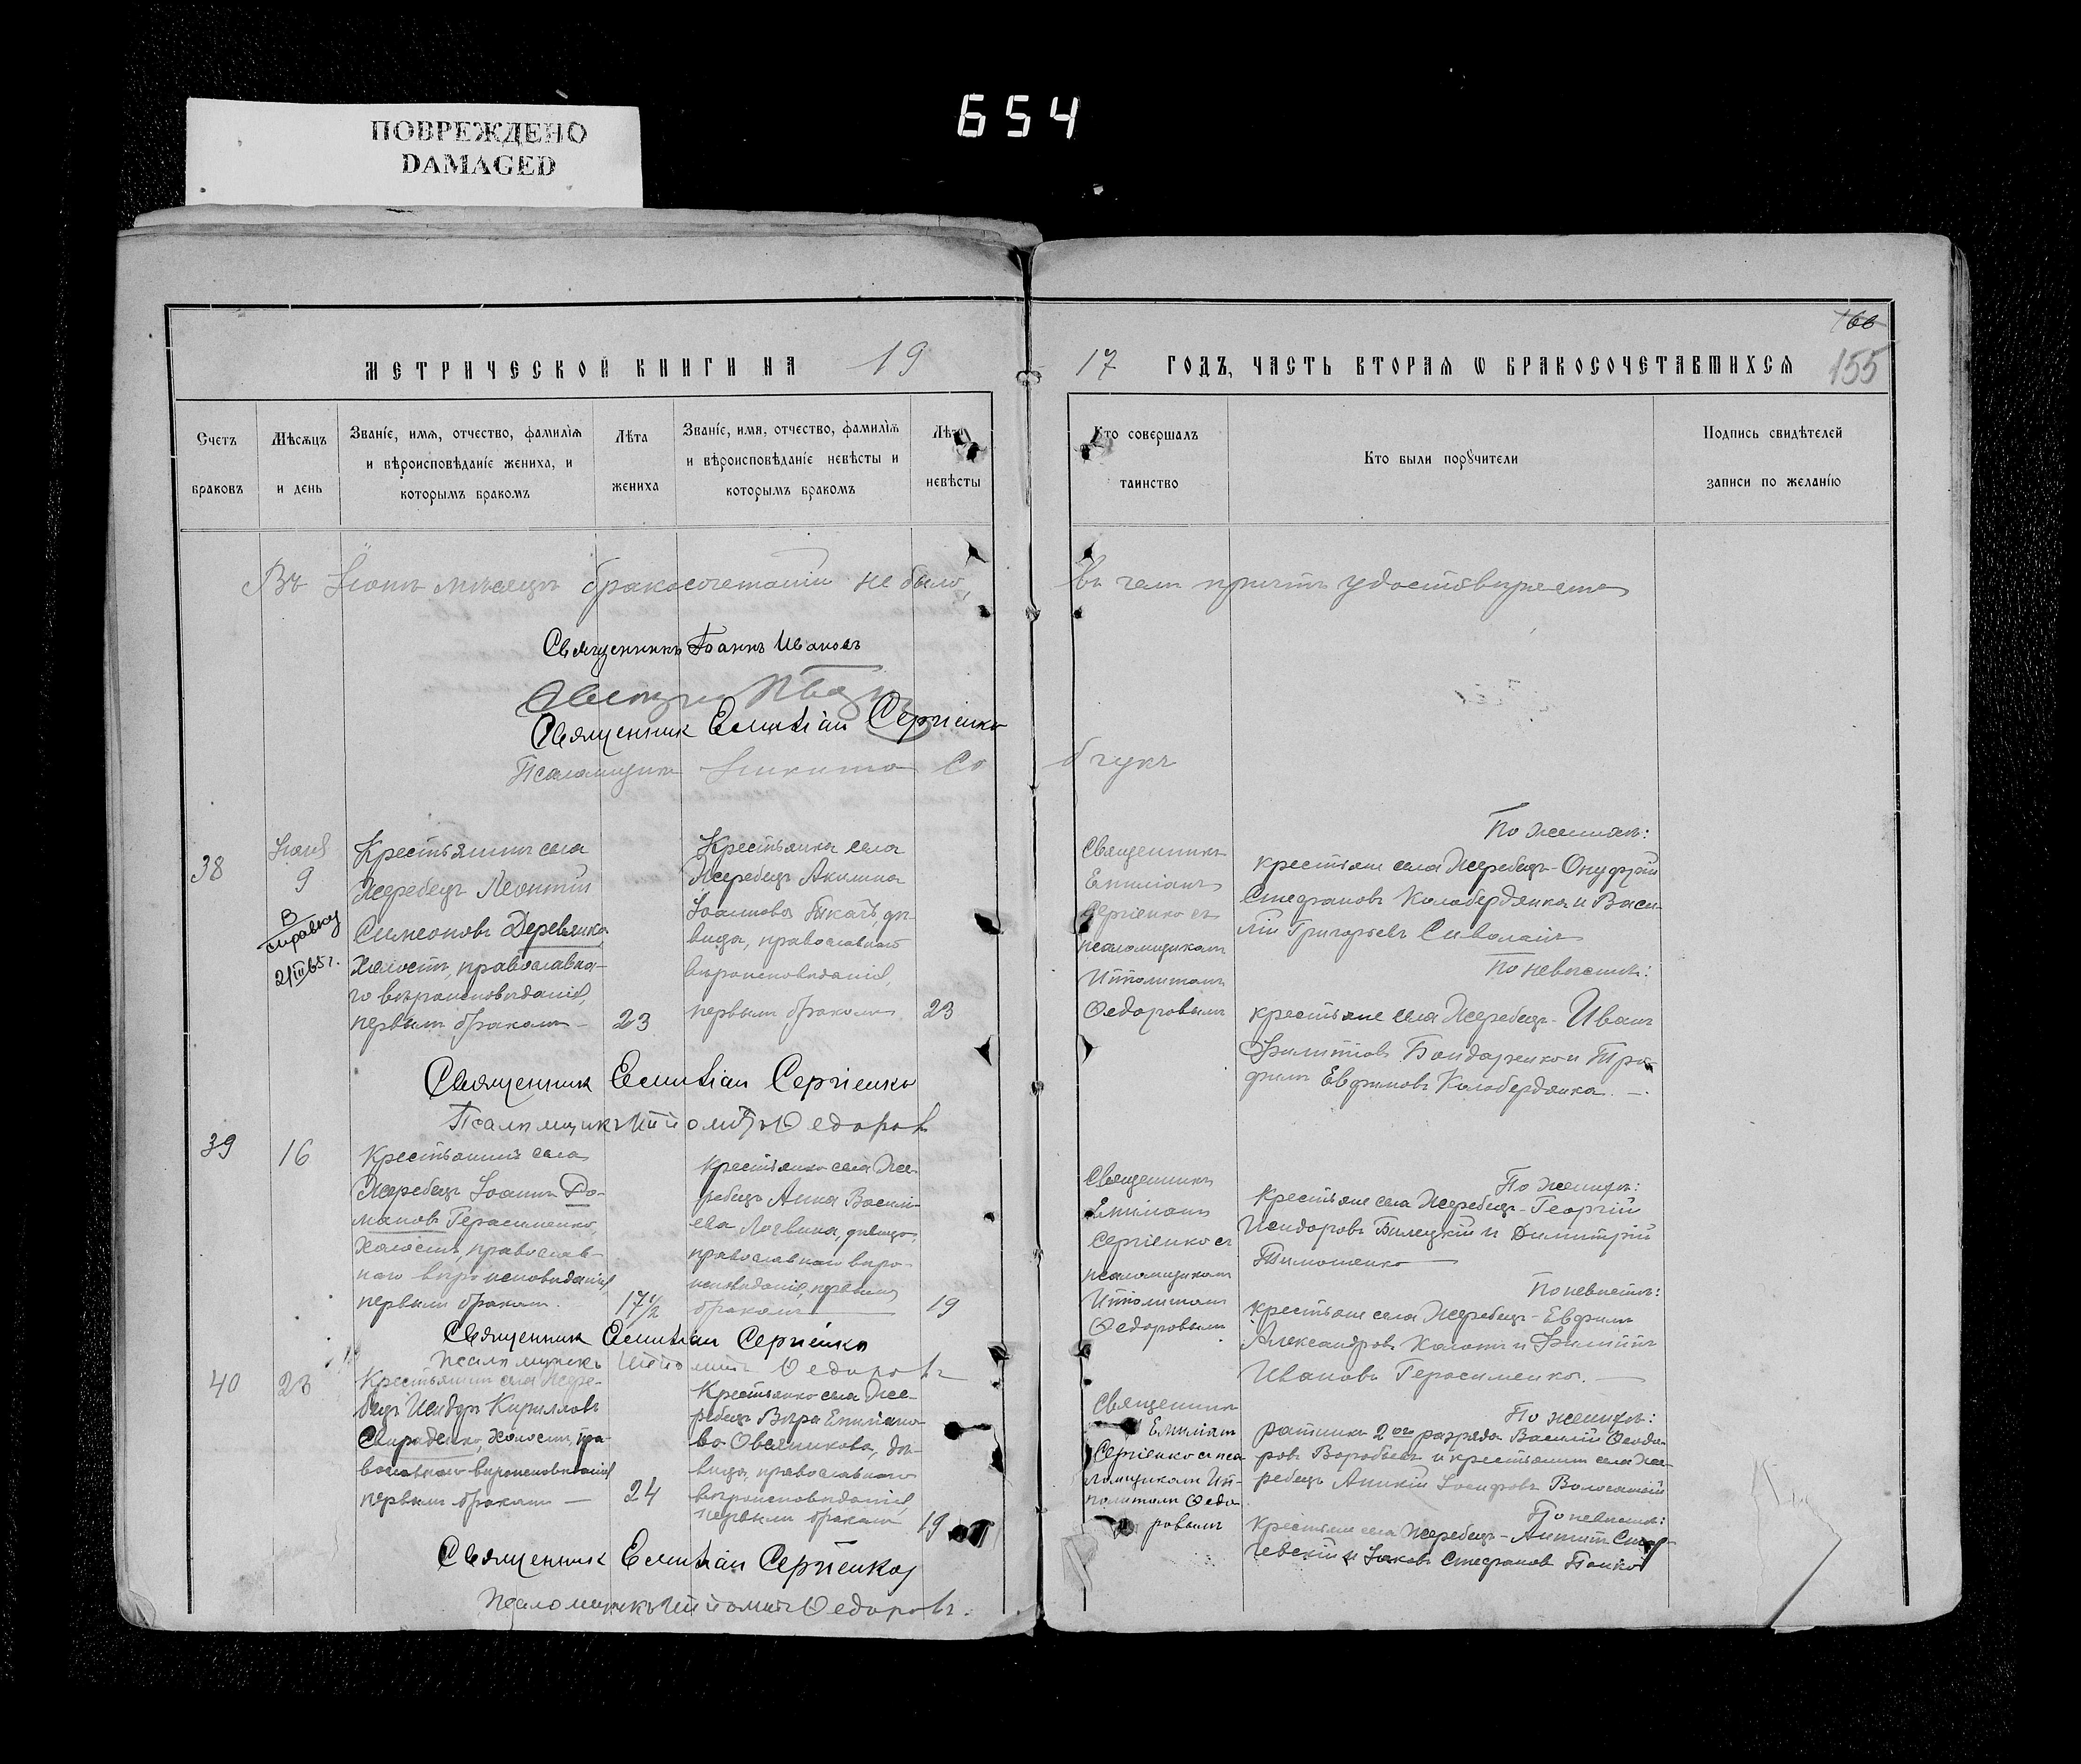 ПОВРЕЖДЕНО
DAMAGED
654
166
155
МЕТРИЧЕСКОЙ КНИГИ НА 19
17 ГОДЪ, ЧАСТЬ ВТОРАЯ Ѡ БРАКОСОЧЕТАВШИХСЯ
Счетъ
браковъ
Мѣсяцъ
и день
Званіе, имя, отчество, фамилія
и вѣроисповѣданіе жениха, и
которымъ бракомъ
Лѣта
жениха
Званіе, имя, отчество, фамилія
и вѣроисповѣданіе невѣсты и
которымъ бракомъ
Лѣта
невѣсты
Кто совершалъ
таинство
Кто были порꙋчители
Подпись свидѣтелей
записи по желанію
Въ Іюнѣ мѣсяцѣ бракосочетаній не было,
въ чемъ причтъ удостовѣряетъ
Священникъ Іоаннъ Ивановъ
Священник Емиліан Сергіенко
Псаломщикъ Никита
38
Іюля
9
В
справку
21III65г.
Крестьянинъ села
Жеребецъ Леонтій
Симеоновъ Деревянко
холостъ, православна-
го вѣроисповѣданія,
первымъ бракомъ -
23
Крестьянка села
Жеребецъ Акилина
Іоаннова Ткачъ, дѣ-
вица, православнаго
вѣроисповѣданія,
первымъ бракомъ
23
Священникъ
Емиліанъ
Сергіенко съ
псаломщикомъ
Ипполитомъ
Ѳедоровымъ
По женихѣ:
крестьяне села Жеребецъ - Онуфрій
Стефановъ Колобердянко и Васи-
лій Григорьевъ Сиволапъ
По невѣстѣ:
крестьяне села Жеребецъ - Иванъ
Филипповъ Бондаренко и Тро-
фимъ Евфимовъ Колобердянко. -
Священник Емиліан Сергіенко
Псаломщикъ Ипполитъ Ѳедоровъ
39
16
Крестьянинъ села
Жеребецъ Іоаннъ До-
мановъ Герасименко,
холостъ, православ-
наго вѣроисповѣданія,
первымъ бракомъ.
17½
Крестьянка села Же-
ребецъ Анна Василь-
ева Логвина, дѣвица,
православнаго вѣро-
исповѣданія, первымъ
бракомъ
19
Священникъ
Емиліанъ
Сергіенко съ
псаломщикомъ
Ипполитомъ
Ѳедоровымъ
По женихѣ:
Крестьяне села Жеребецъ - Георгій
Исидоровъ Билецкій и Димитрій
Тимошенко
По невѣстѣ:
крестьяне села Жеребецъ - Евфимъ
Александровъ и Филиппъ
Ивановъ Герасименко. -
Священник Емиліан Сергіенко
Псаломщикъ Ипполитъ Ѳедоровъ
40
23
Крестьянинъ села Жере-
бецъ Исидоръ Кирилловъ
Свириденко, холостъ, пра-
вославнаго вѣроисповѣданія
первымъ бракомъ -
24
Крестьянка села Же-
ребецъ Вѣра Емиліано-
ва Овсянникова, дѣ-
вица, православнаго
вѣроисповѣданія,
первымъ бракомъ
19
Священникъ
Емиліанъ
Сергіенко съ пса
ломщикомъ Ип-
политомъ Ѳедо
ровымъ
По женихѣ:
ратникъ 2го разряда Василій Ѳеодо-
ровъ Воробьевъ и крестьянинъ села Же-
ребецъ Аникій Іосифовъ Волосатый
По невѣстѣ:
Крестьяне села Жеребецъ -
и Іаковъ Стефановъ Попко
Священник Емиліан Сергіенко
Псаломщикъ Ипполитъ Ѳедоровъ.